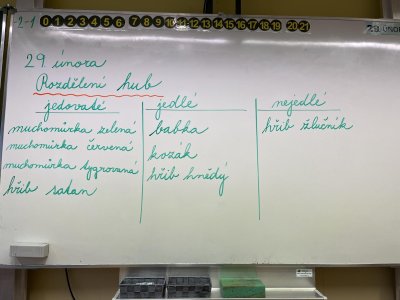 -2-1 0 1 2 3 4 5 6 7 8 9 10 11 12 13 14 15 16 17 18 19 20 21
29. ÚNOR
29. února
Rozdělení hub
jedovaté
muchomůrka zelená
muchomůrka červená
muchomůrka tygrovaná
hřib satan
jedlé
babka
kozák
hřib hnědý
nejedlé
hřib žlučník